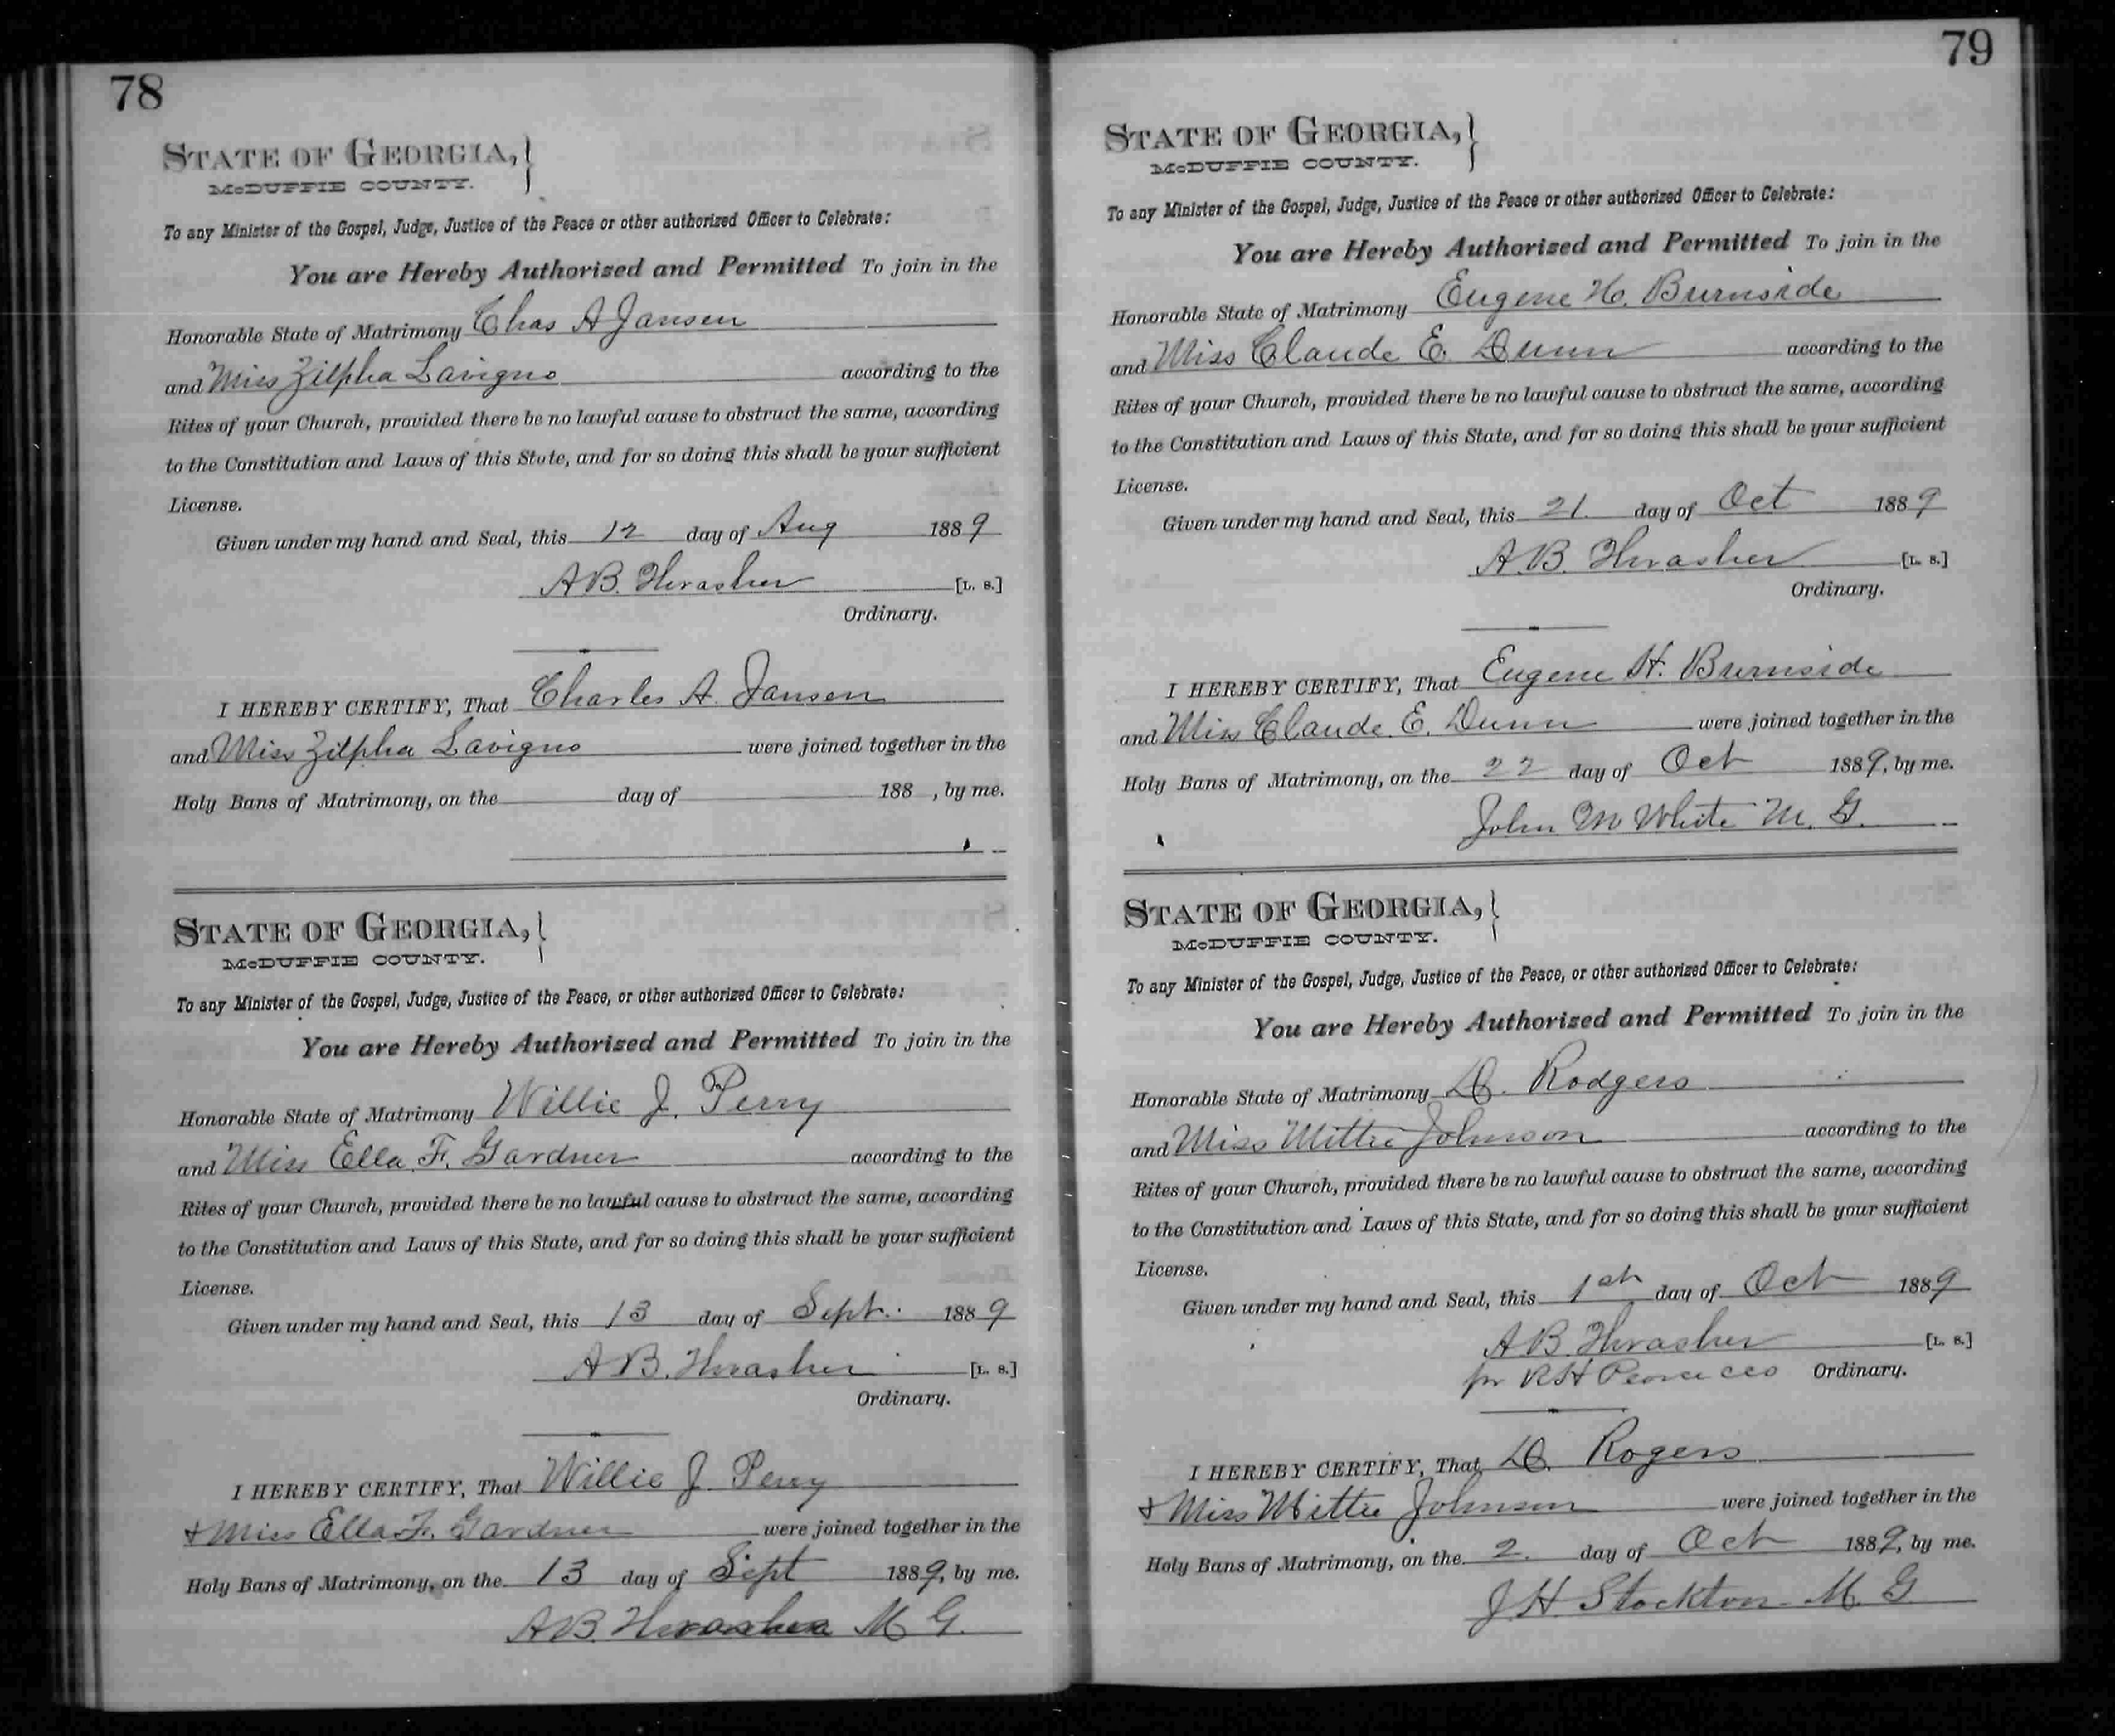 78
STATE OF GEORGIA,}
McDUFFIE COUNTY.
To any Minister of the Gospel, Judge, Justice of the Peace or other authorized Officer to Celebrate:
You are Hereby Authorized and Permitted To join in the
Honorable State of Matrimony Chas A Jansen
and Miss Zilpha Lavigno according to the
Rites of your Church, provided there be no lawful cause to obstruct the same, according
to the Constitution and Laws of this State, and for so doing this shall be your sufficient
License.
Given under my hand and Seal, this 12 day of Aug 1889
A B. Thrasher [L. S.]
Ordinary.
I HEREBY CERTIFY, That Charles A. Jansen
and Miss Zilpha Lavigno were joined together in the
Holy Bans of Matrimony, on the day of 188 , by me.
STATE OF GEORGIA,}
McDUFFIE COUNTY.
To any Minister of the Gospel, Judge, Justice of the Peace, or other authorized Officer to Celebrate:
You are Hereby Authorized and Permitted To join in the
Honorable State of Matrimony Willie J. Perry
and Miss Ella F. Gardner according to the
Rites of your Church, provided there be no lawful cause to obstruct the same, according
to the Constitution and Laws of this State, and for so doing this shall be your sufficient
License.
Given under my hand and Seal, this 13 day of Sept. 1889
A B. Thrasher [L. S.]
Ordinary.
I HEREBY CERTIFY, That Willie J Perry
& Miss Ella F. Gardner were joined together in the
Holy Bans of Matrimony, on the 13 day of Sept 1889, by me.
A B. Thrasher M G.
79
STATE OF GEORGIA,}
McDUFFIE COUNTY.
To any Minister of the Gospel, Judge, Justice of the Peace or other authorized Officer to Celebrate:
You are Hereby Authorized and Permitted To join in the
Honorable State of Matrimony Eugene H. Burnside
and Miss Claude E. Dunn according to the
Rites of your Church, provided there be no lawful cause to obstruct the same, according
to the Constitution and Laws of this State, and for so doing this shall be your sufficient
License.
Given under my hand and Seal, this 21 day of Oct 1889
A. B. Thrasher [L. S.]
Ordinary.
I HEREBY CERTIFY, That Eugene H. Burnside
and Miss Claude E. Dunn were joined together in the
Holy Bans of Matrimony, on the 22 day of Oct 1889, by me.
John M White M. G.
STATE OF GEORGIA,}
McDUFFIE COUNTY.
To any Minister of the Gospel, Judge, Justice of the Peace, or other authorized Officer to Celebrate:
You are Hereby Authorized and Permitted To join in the
Honorable State of Matrimony Rodgers
and Miss Mittie Johnson according to the
Rites of your Church, provided there be no lawful cause to obstruct the same, according
to the Constitution and Laws of this State, and for so doing this shall be your sufficient
License.
Given under my hand and Seal, this 1st day of Oct 1889
A B. Thrasher [L. S.]
for R H Pearce Ordinary.
I HEREBY CERTIFY, That Rogers
& Miss Mittie Johnson were joined together in the
Holy Bans of Matrimony, on the 2 day of Oct 1889, by me.
J. H. Stockton M. G